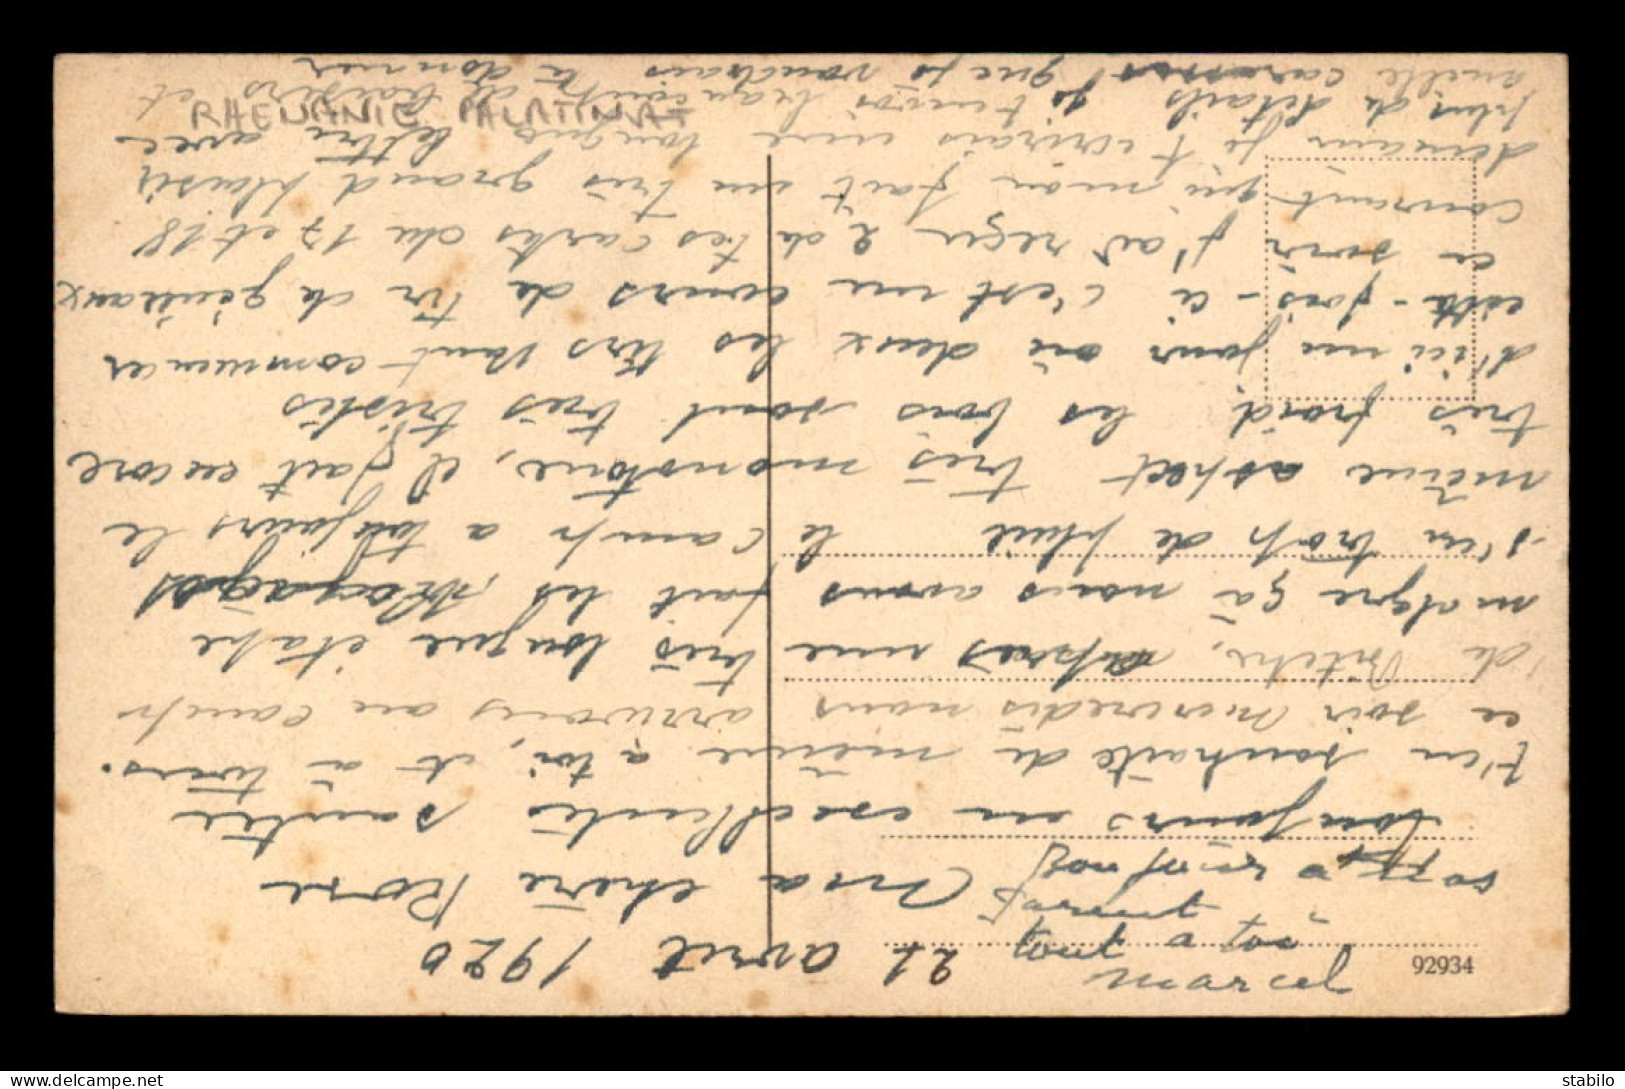 21 avril 1920
Ma chère Rose
toujours en excellente santée
t'en souhaite de même a toi, et à tous.
ce soir mercredis nous arrivons au camp
de Bitche, après une très longue étape
malgre ça nous avons fait les
s'en trop de pluie le camp a toujours le
même aspect très monotone, il fait encore
très froid, les bois sont très tristes
d'ici un jour ou deux les tirs vont commencer
cette-fois-ci c'est un cours de tir de généraux
ce soir j'ai reçu 2 de tes cartes du 17 et 18
courant qui m'on fait un très grand plaisir
demain je t'ecrirais une longue lettre avec
plus de détails je t'envoi beaucoup de baisers et
caresses que je voudrais ta donner
bonjour a tes
parent
tout a toi
Marcel
RHENANIE PALATINAT
92934
stabilo